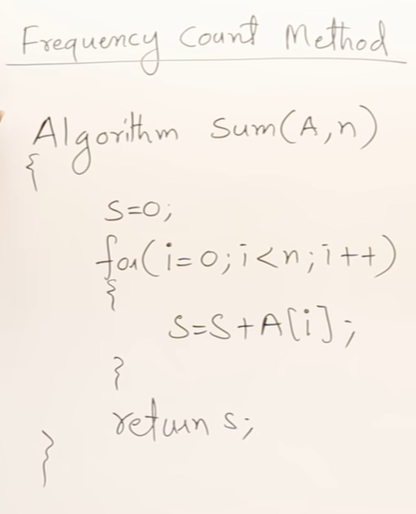 Frequency Count Method
Algorithm Sum(A,n)
{
s=0;
for(i=0;i<n;i++)
{
S=S+A[i];
}
return s;
}